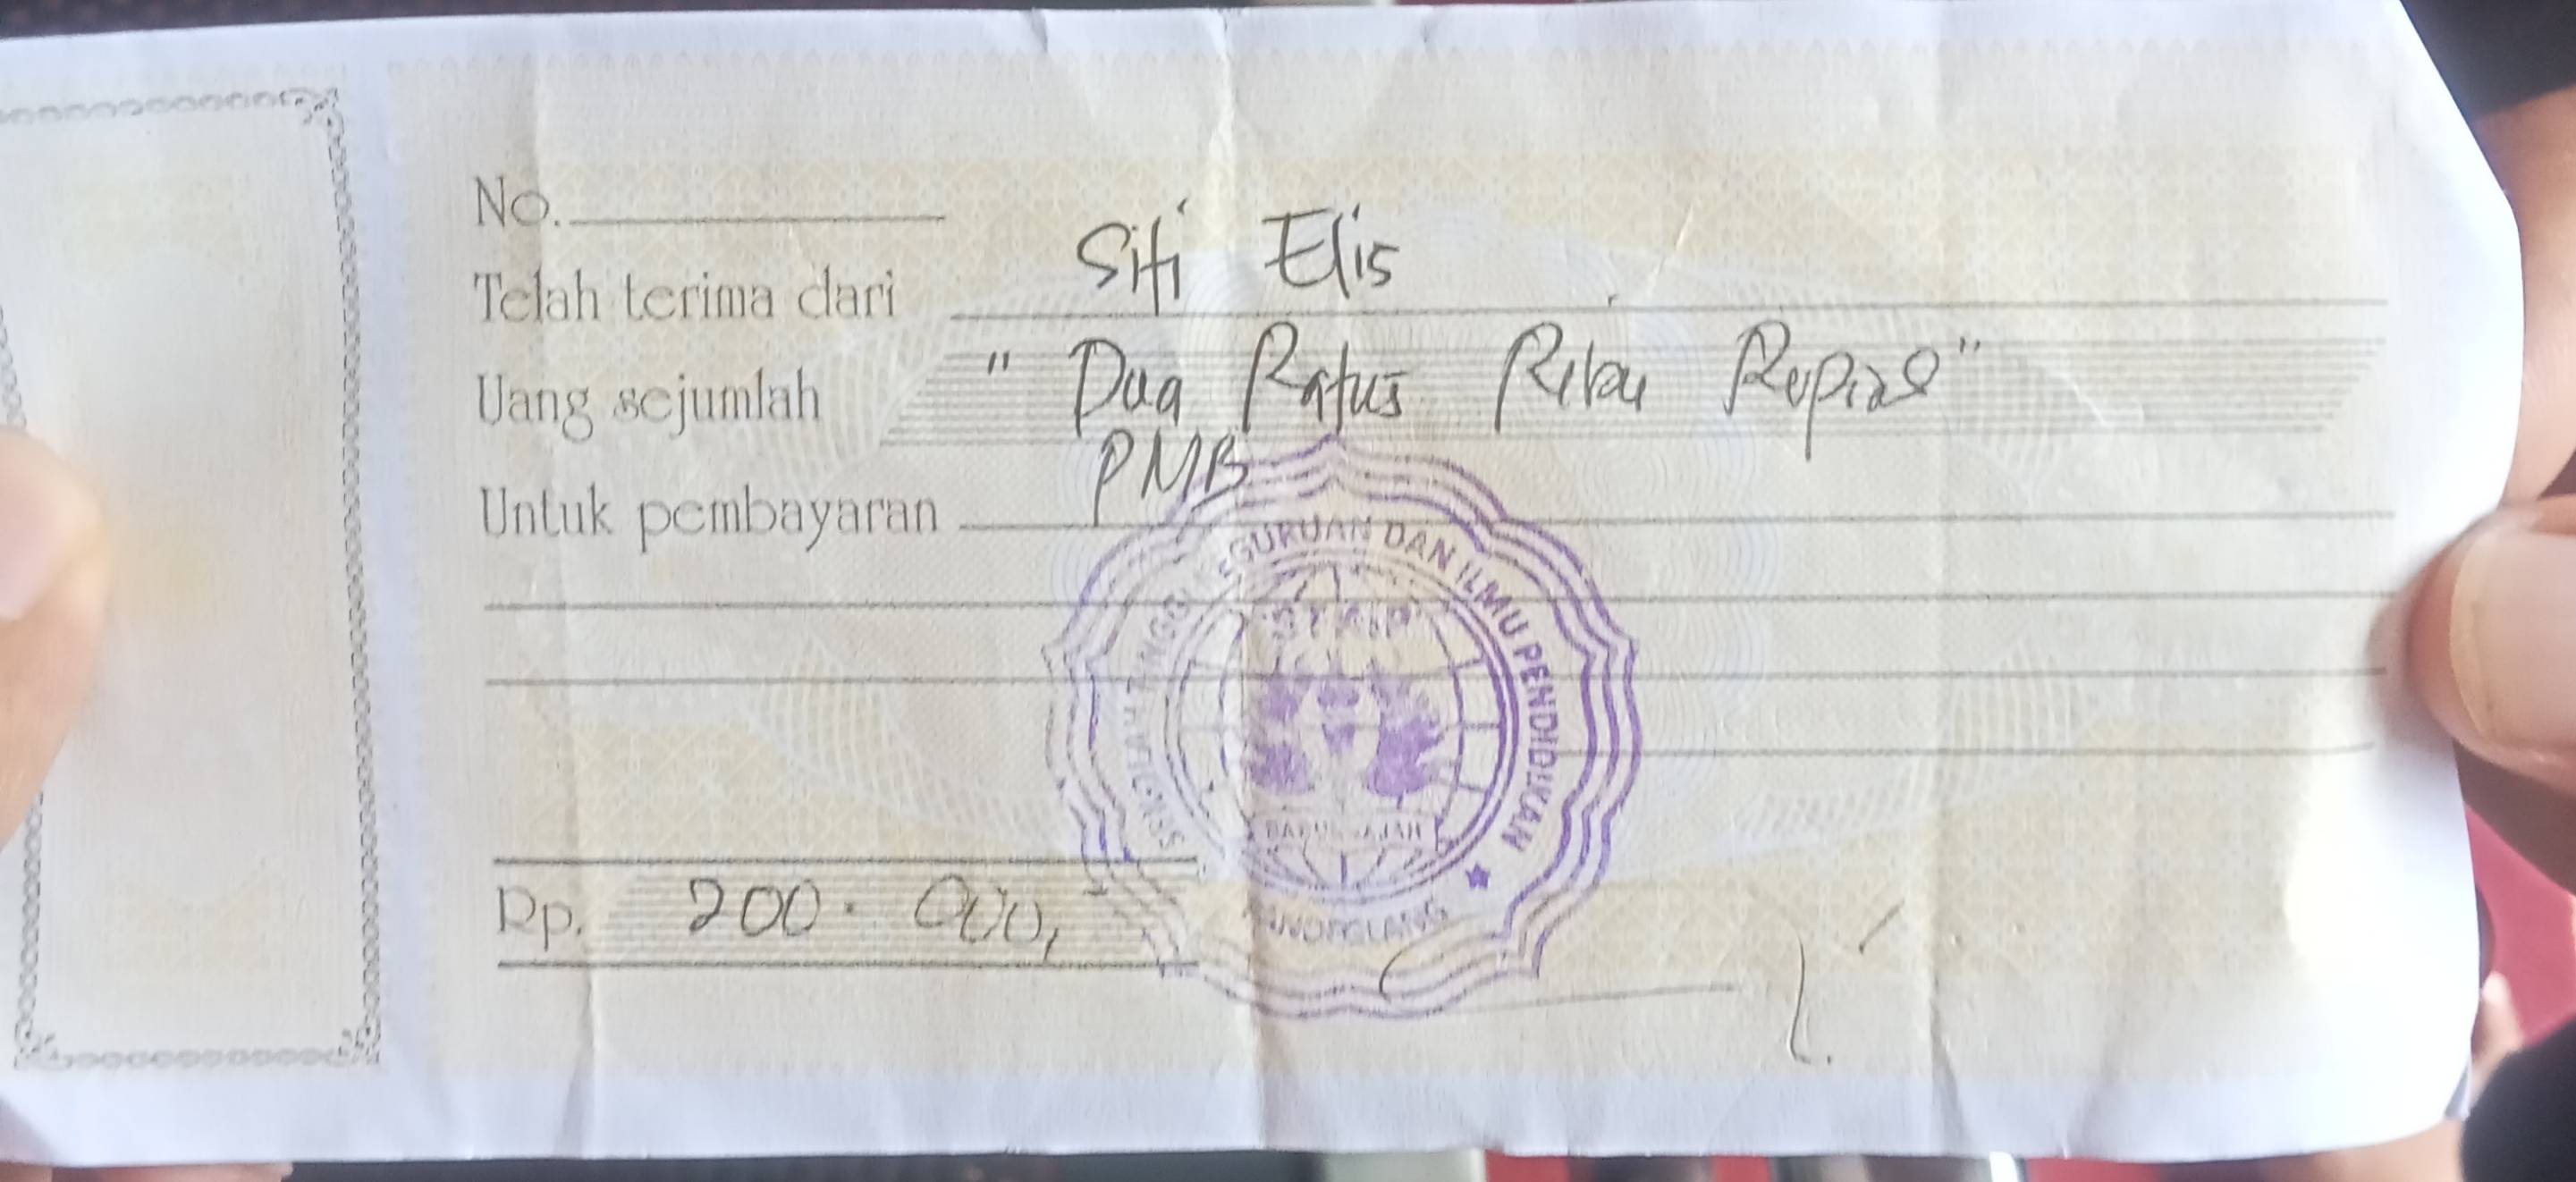 No.
Telah terima dari Siti Elis
Uang sejumlah " Dua Ratus Ribu Rupiah "
Untuk pembayaran PMB
TINGGI KEGURUAN DAN ILMU PENDIDIKAN
STKIP
PANDEGLANG
Rp. 200.000,-